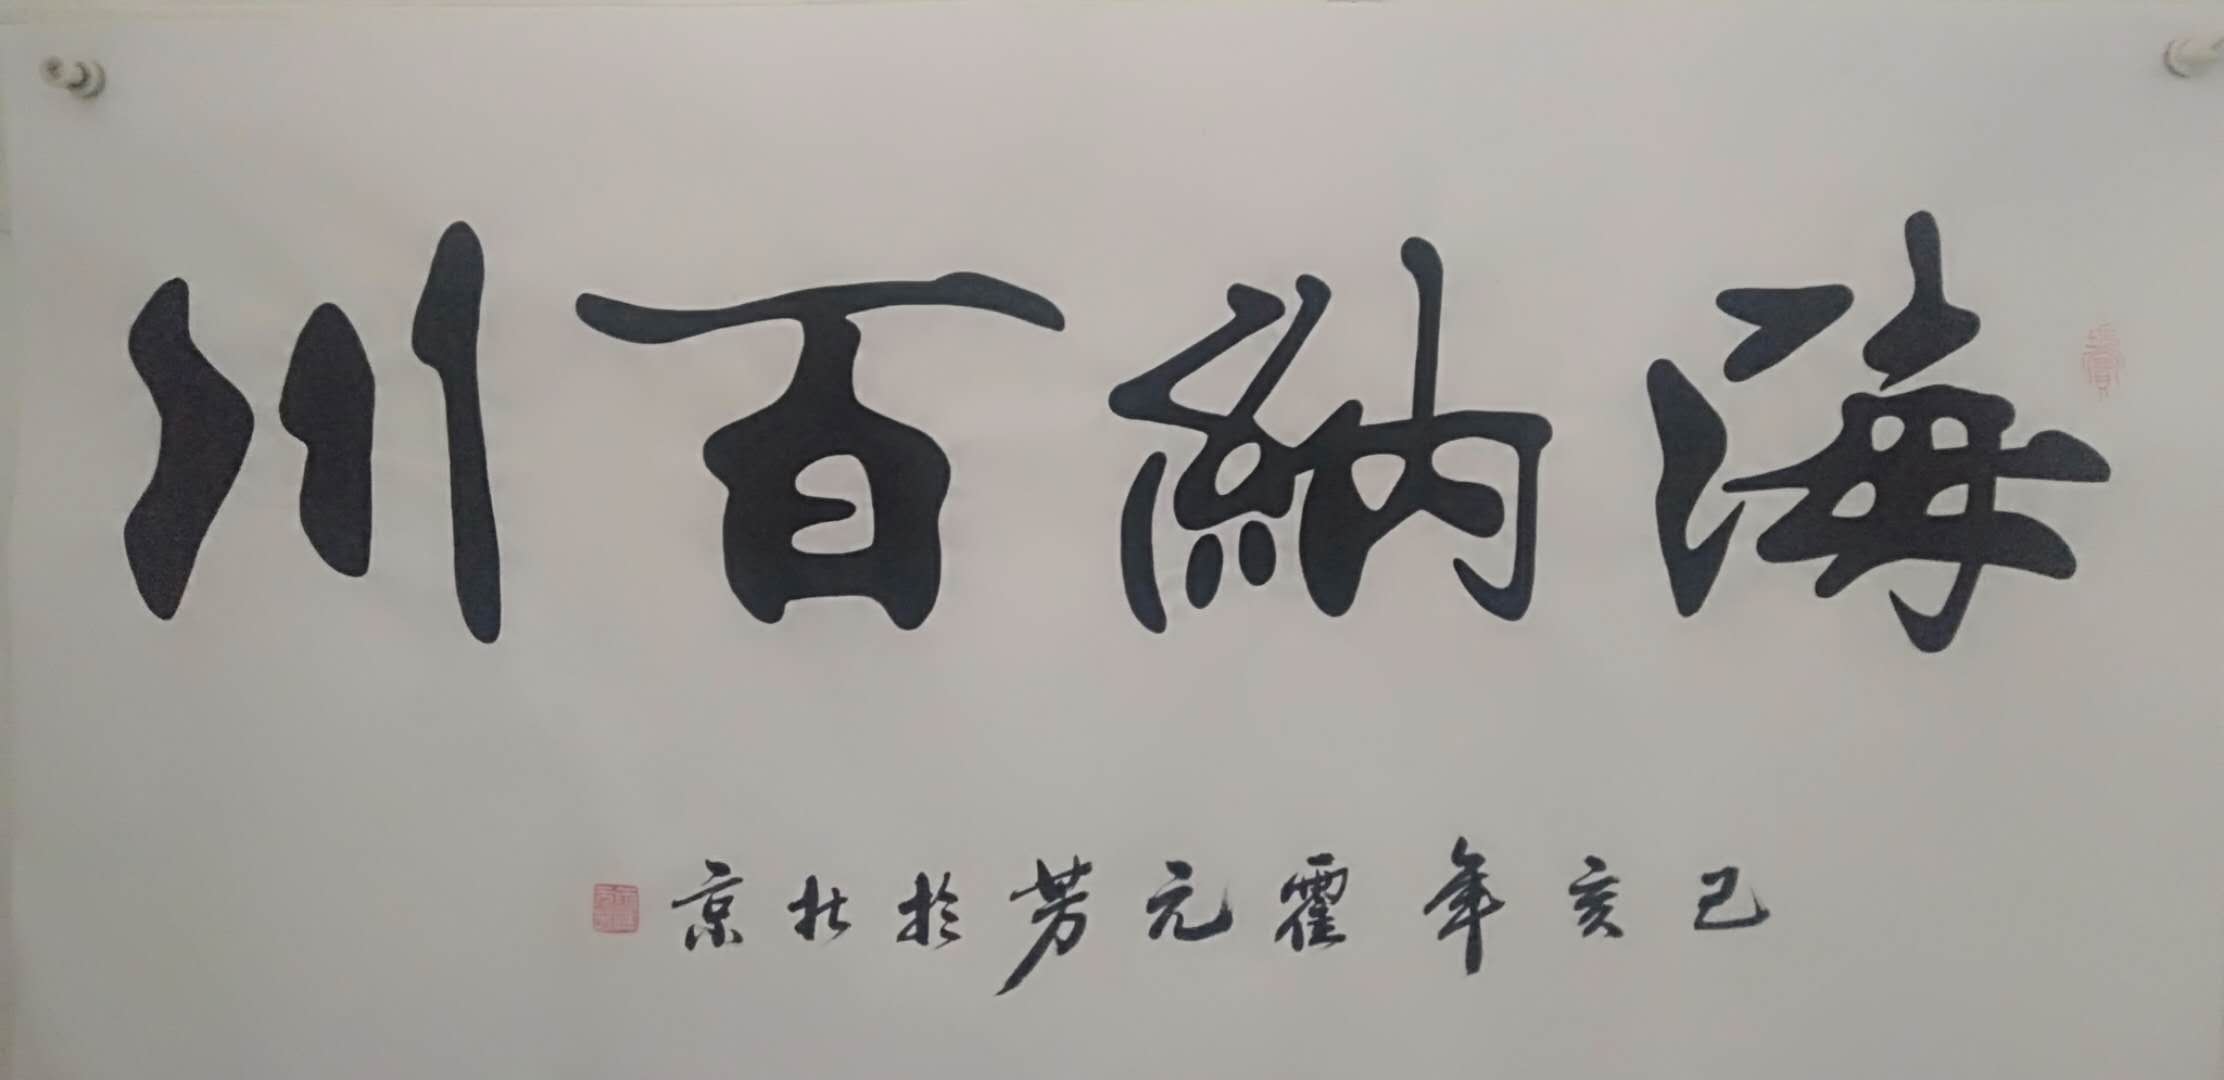 海納百川
己亥年霍元芳於北京